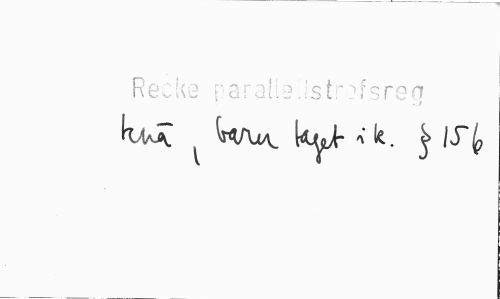 Recke parallellstrofsreg
knä, barn taget i k. § 156